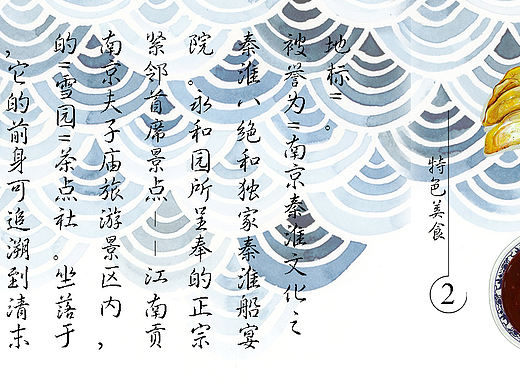 ，它的前身可追溯到清末
的"雪园"茶点社。坐落于
南京夫子庙旅游景区内，
紧邻首席景点——江南贡
院。永和园所呈奉的正宗
秦淮八绝和独家秦淮船宴
被誉为"南京秦淮文化之
地标"。
特色美食
2